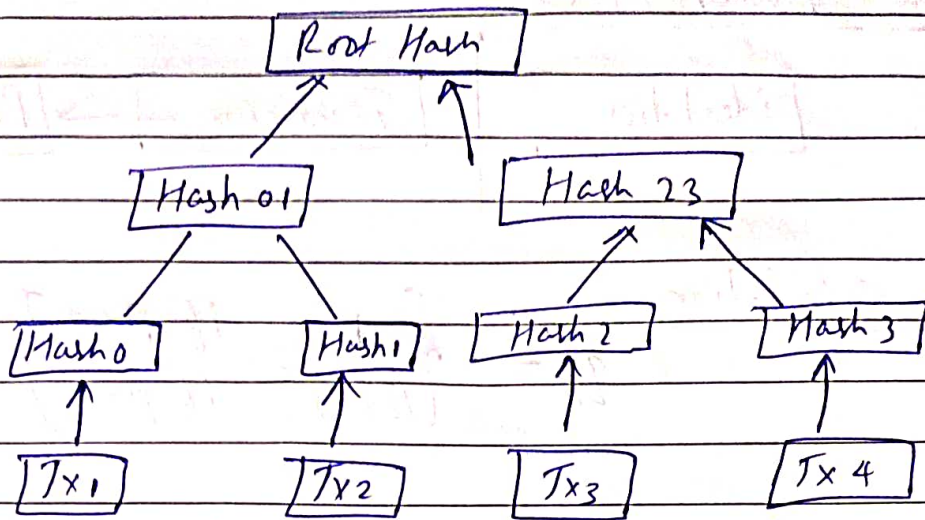 Root Hash
Hash 01 Hash 23
Hash 0 Hash 1 Hash 2 Hash 3
Tx1 Tx2 Tx3 Tx 4